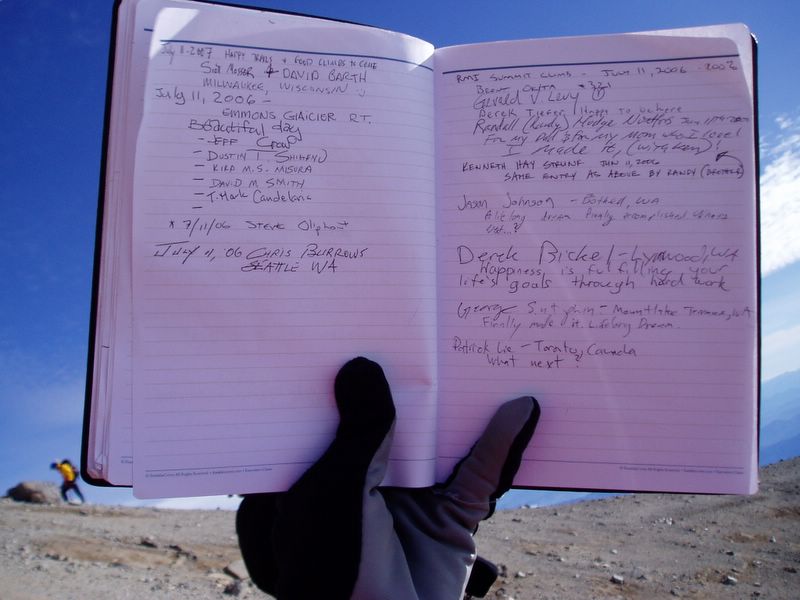 July 11-2007 HAPPY TRAILS & GOOD CLIMBS TO COME
Sid Mosser & DAVID BARTH
MILWAUKEE, WISCONSIN :)
July 11, 2006 -
EMMONS GlAICIER RT.
Beautiful day
- JEFF Crow
- DUSTIN I.
- KIRA M.S. MISURA
- DAVID M SMITH
- T. Mark Candelaria
-
* 7/11/06 STEVE Oliphant
JULY 11, 06 CHRIS BURROWS
SEATTLE WA
RMI SUMMIT CLIMB - JULY 11, 2006
BRENT
Gerald V. Levy
Derek Happy to be here
Randell (Randy) Hodge
For my Dad & for my Mom who I love!
I made it, !
KENNETH HAY JUN 11, 2006
SAME ENTRY AS ABOVE BY RANDY (BROTHER)
Jason Johnson - Bothell, WA
A lifelong dream finally accomplished
Derek Bickel - Lynwood, WA
Happiness is fulfilling your
life's goals through hard work
George - Mountlake Terrace, WA
Finally made it. Lifelong Dream.
Patrick Lie - Toronto, Canada
What next?